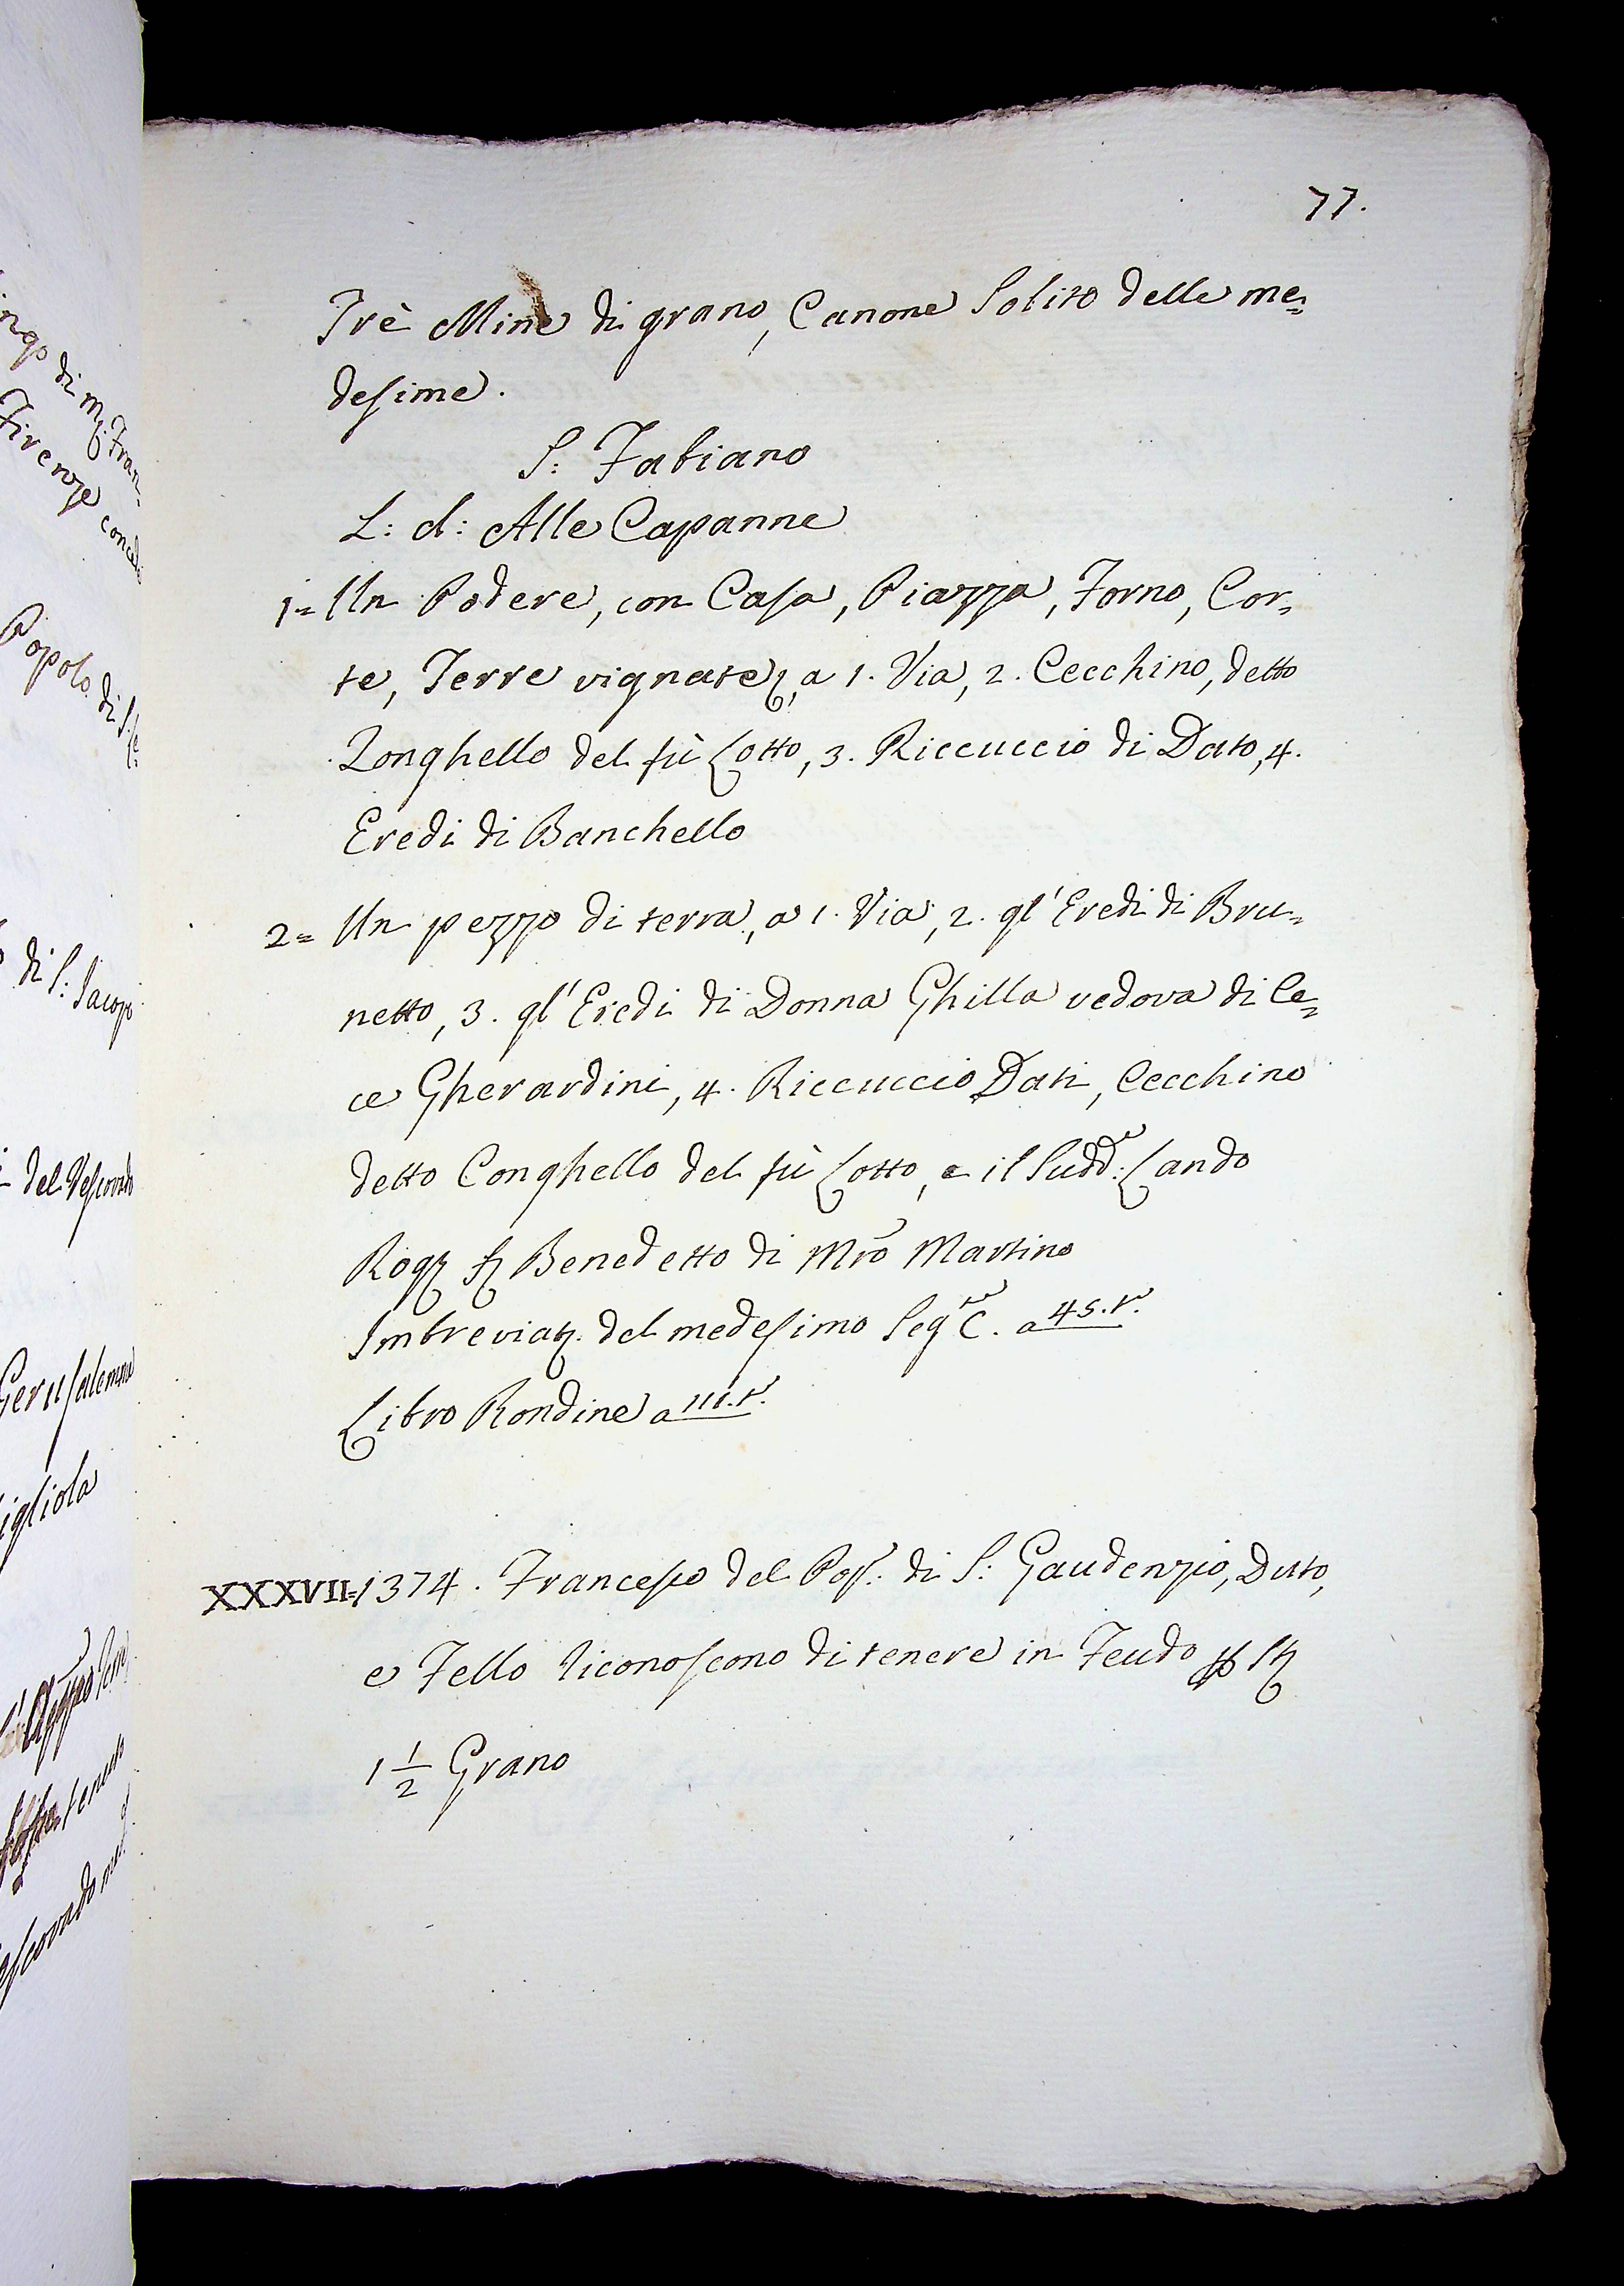 77.
Trè Mine di grano, Canone Solito delle me=
desime.
S: Fabiano
L: d: Alle Capanne
1= Un Podere, con Casa, Piazza, Forno, Cor=
te, Terre vignate, a 1. Via, 2. Cecchino, detto
Longhello del fù Lotto, 3. Riccuccio di Dato, 4.
Eredi di Banchello
2= Un pezzo di terra, a 1. Via, 2. gl' Eredi di Bru=
netto, 3. gl' Eredi di Donna Ghilla vedova di Ce=
ce Gherardini, 4. Riccuccio Dati, Cecchino
detto Conghello del fù Lotto, e il Sudd: Lando
Rog Benedetto di Mro Martino
Imbreviaz. del medesimo Seg C. a 45.r.
Libro Rondine a 111.r.
XXXVII=1374. Francesco del Pop: di S: Gaudenzio, Duto,
e Tello riconoscono di tenere in Feudo
1 1/2 Grano
di
Fran=
Firenze
Popolo di
di S: Jacopo
del Vescovado
Gerusalemme